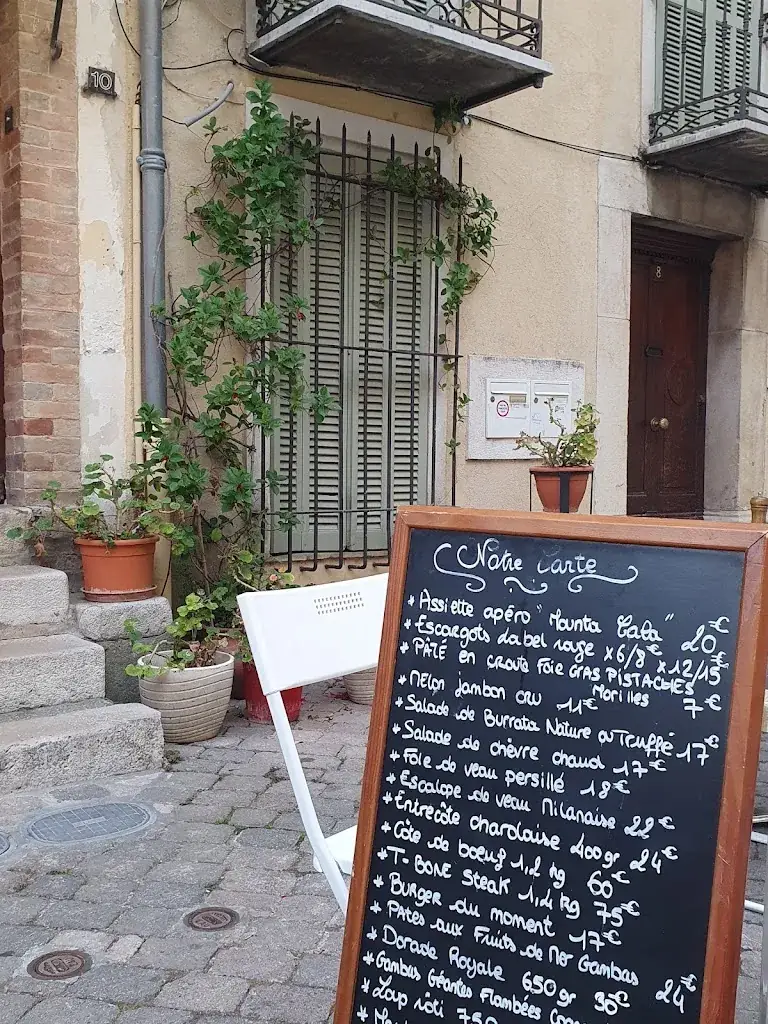 10
8
Notre Carte
* Assiette apéro "Mounta Cala" 20€
* Escargots Label rouge x6/8€ x12/15€
* PÂTÉ en croute Foie GRAS PISTACHES Morilles 7€
* Melon jambon cru 11€
* Salade de Burrata Nature ou Truffé 17€
* Salade de chèvre chaud 17€
* Foie de veau persillé 18€
* Escalope de veau Milanaise 22€
* Entrecôte charolaise 400gr 24€
* Côte de boeuf 1,2 kg 60€
* T-BONE Steak 1,4 kg 75€
* Burger du moment 17€
* Pates aux Fruits de Mer Gambas 24€
* Dorade Royale 650gr 30€
* Gambas Géantes Flambées
* Loup rôti 750